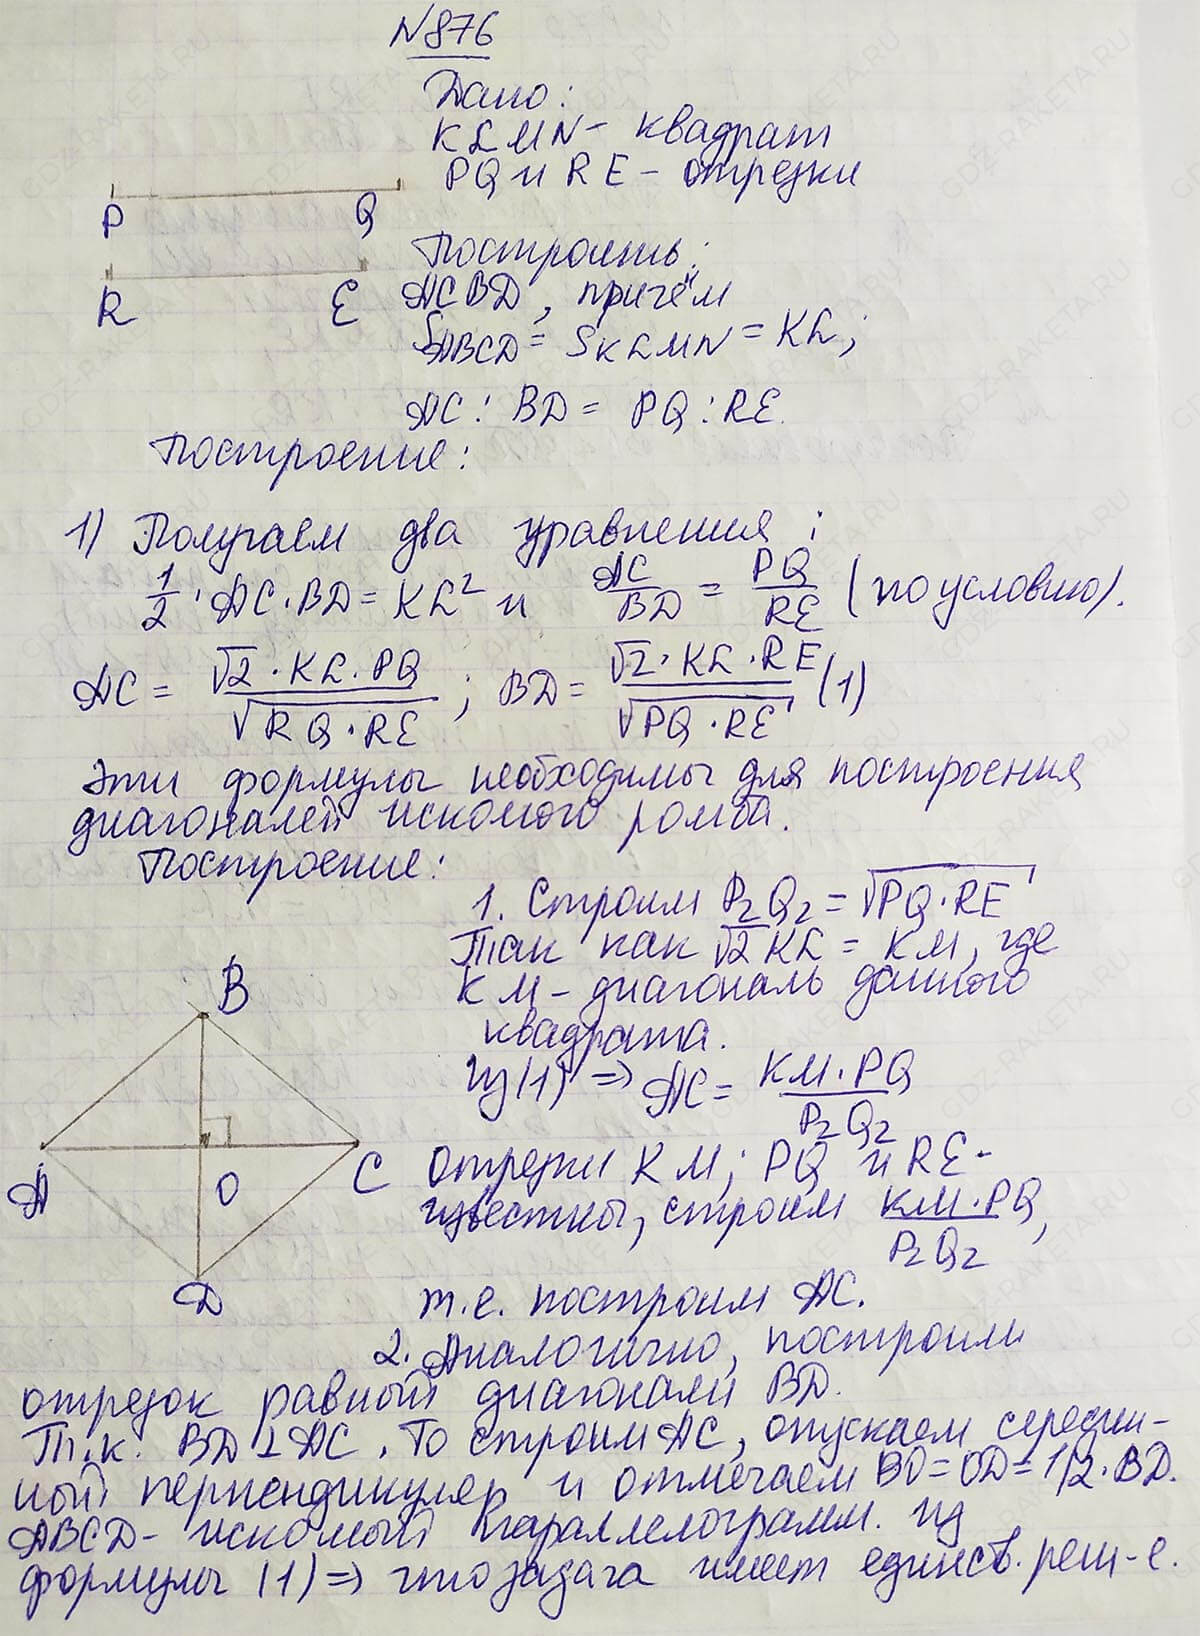 N876
Дано:
KLMN - квадрат
PQ и RE - отрезки
P Q
Построить:
R E
ACBD, причём
S_ABCD = S_KLMN = KL;
AC : BD = PQ : RE.
Построение:
1) Получаем два уравнения:
1/2 · AC · BD = KL² и AC/BD = PQ/RE (по условию).
AC = √2 · KL · PQ / √RQ · RE ; BD = √2 · KL · RE / √PQ · RE (1)
Эти формулы необходимы для построения
диагоналей искомого ромба.
Построение:
1. Строим P₂Q₂ = √PQ · RE
Так как √2 KL = KM, где
KM - диагональ данного
квадрата.
Из (1) ⇒ AC = KM · PQ / P₂Q₂
B
A O C
D
Отрезки KM; PQ и RE -
известны, строим KM · PQ / P₂Q₂,
т.е. построим AC.
2. Аналогично, построим
отрезок равный диагонали BD.
Т.к. BD ⊥ AC. То строим AC, опускаем середин-
ной перпендикуляр и отмечаем BO = OD = 1/2 · BD.
ABCD - искомый параллелограмм. Из
формулы (1) ⇒ что задача имеет единств. реш-е.
GDZ-RAKETA.RU